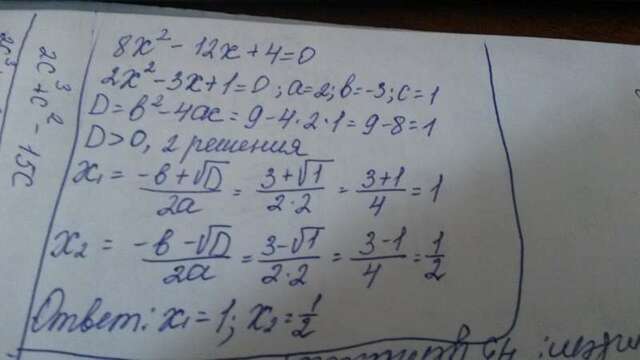 8x² - 12x + 4 = 0
2x² - 3x + 1 = 0 ; a = 2; в = -3; c = 1
D = в² - 4ac = 9 - 4·2·1 = 9 - 8 = 1
D > 0, 2 решения
x₁ = (-в + √D)/(2a) = (3 + √1)/(2·2) = (3 + 1)/4 = 1
x₂ = (-в - √D)/(2a) = (3 - √1)/(2·2) = (3 - 1)/4 = 1/2
Ответ: x₁ = 1; x₂ = 1/2
2c³ + c² - 15c